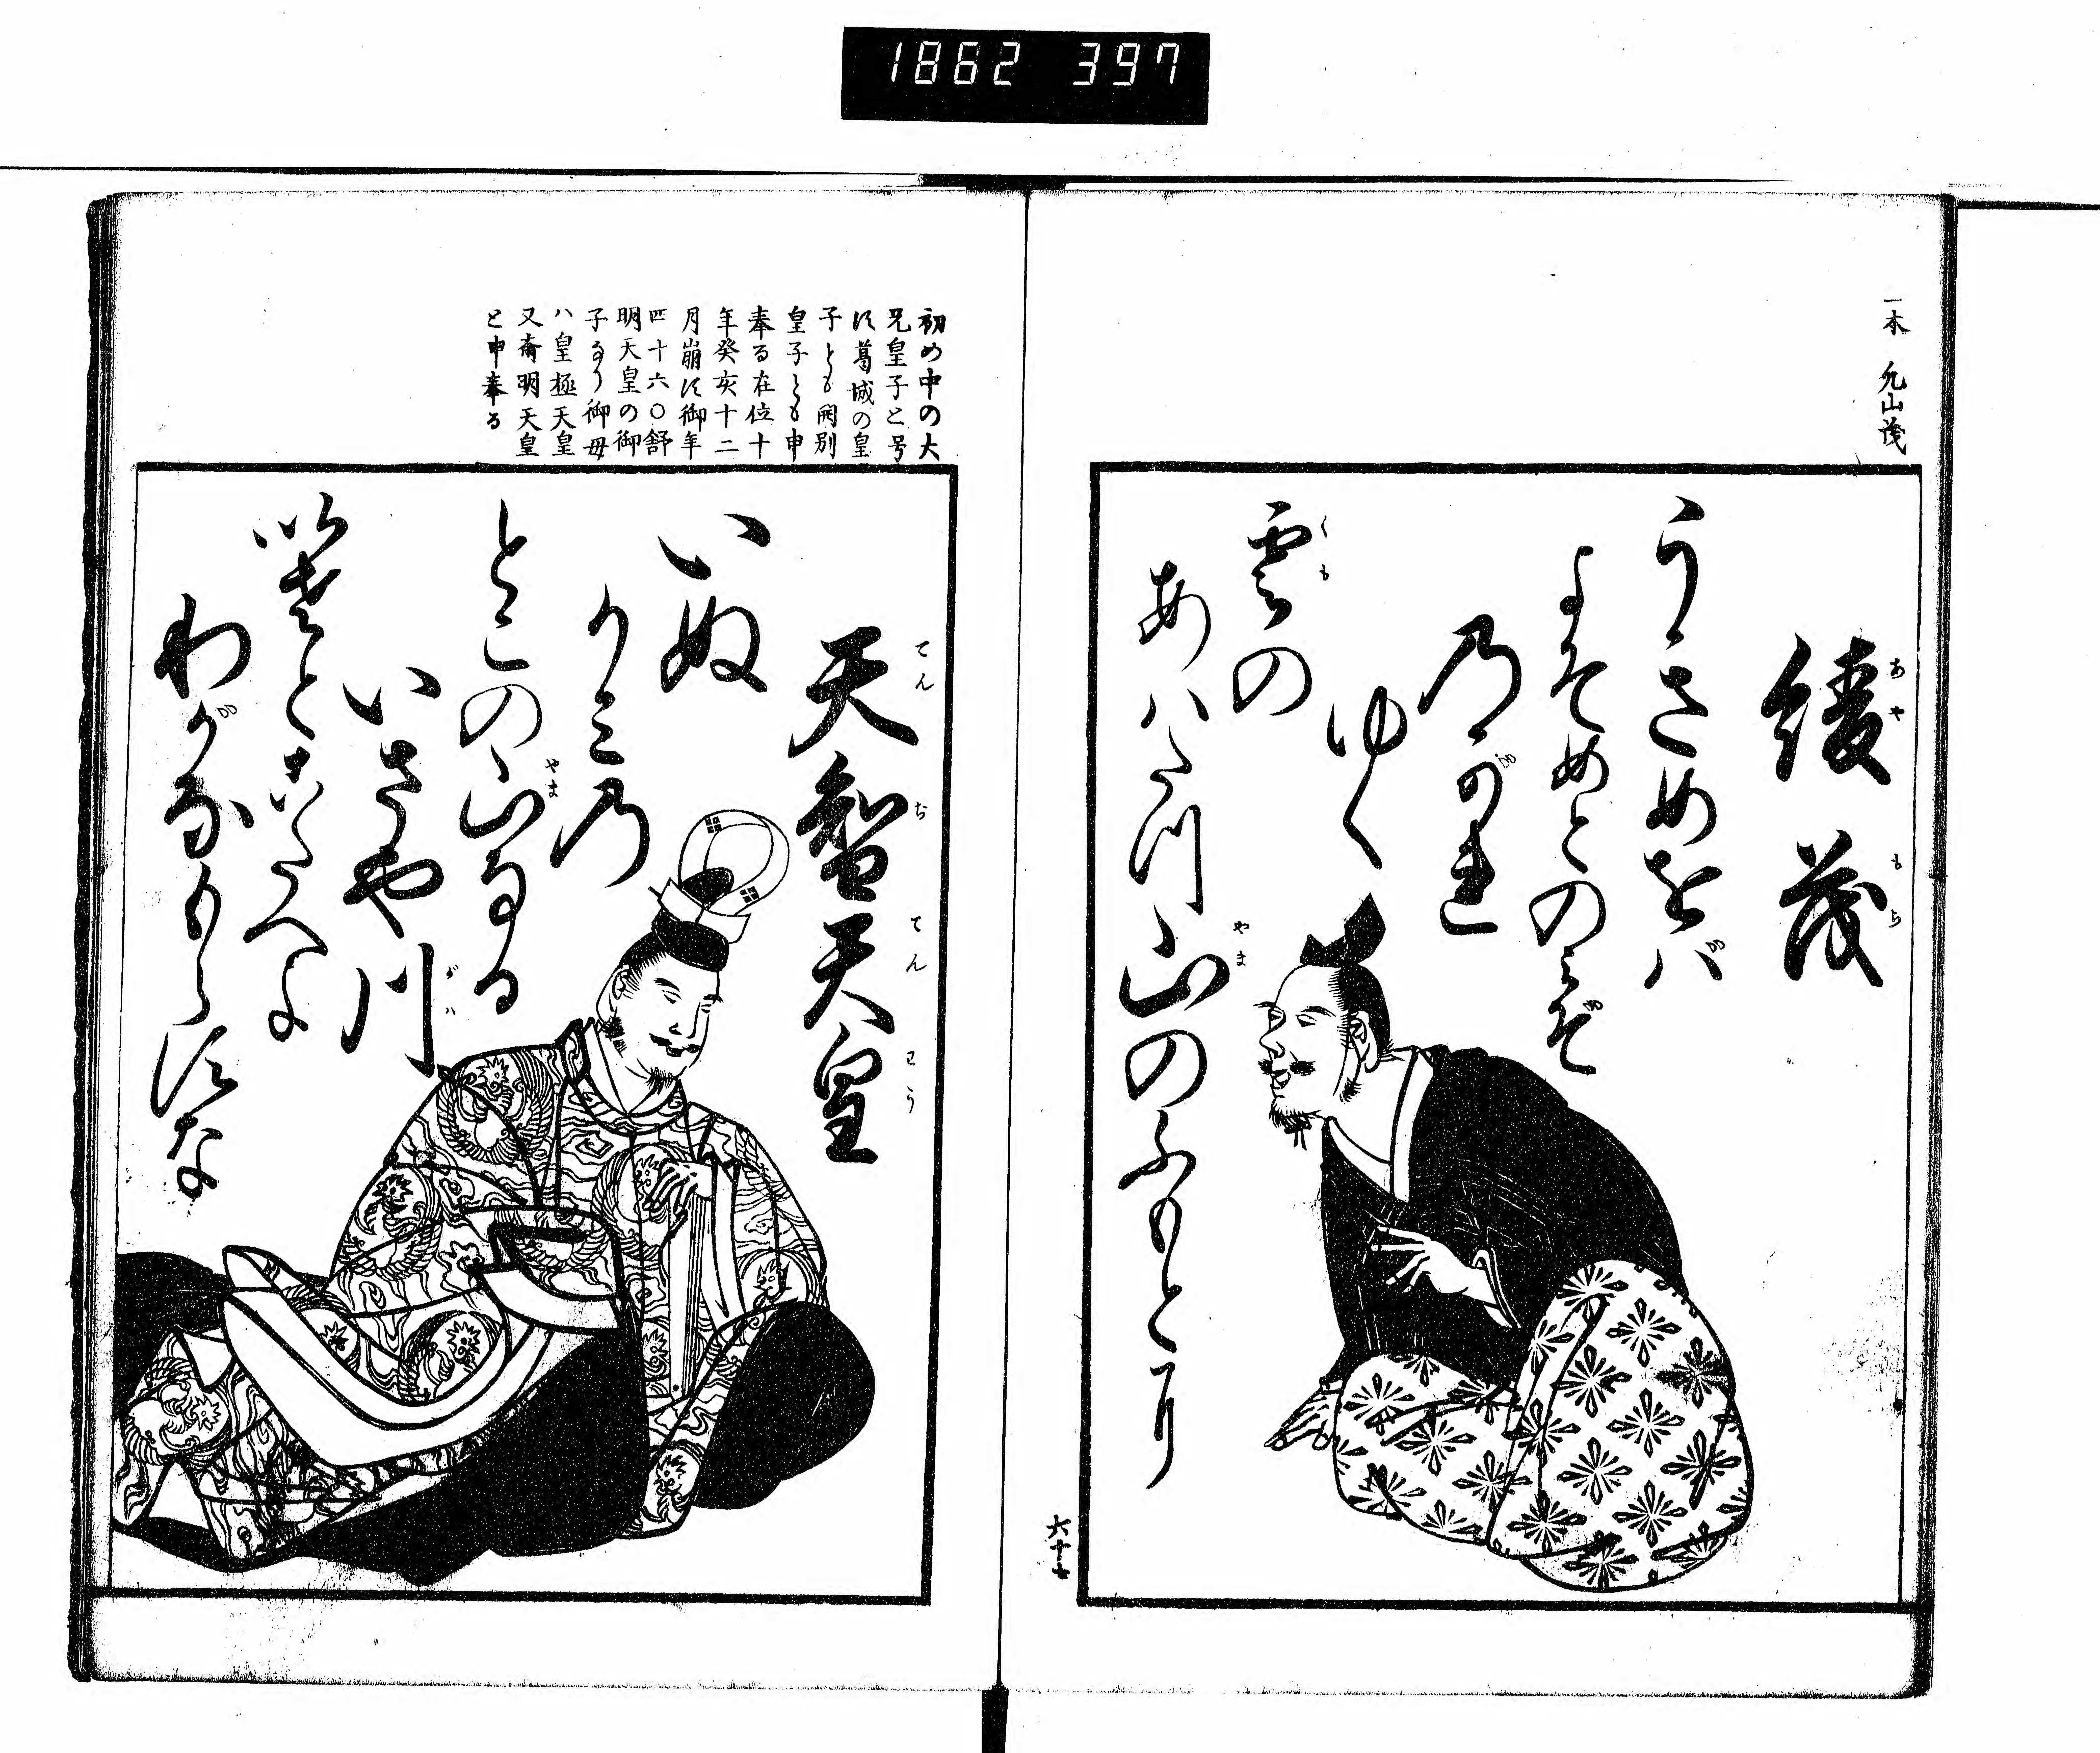 1862 397
一本 允山茂
綾茂
あや もち
うきめをバ
よそめとのミぞ
乃がれ
ゆく
雲の
くも
あハた川山のふもとに
やま
六十七
初め中の大
兄皇子と号
す葛城の皇
子とも開別
皇子とも申
奉る在位十
年癸亥十二
月崩す御年
四十六〇舒
明天皇の御
子なり御母
ハ皇極天皇
又斉明天皇
と申奉る
天智天皇
てんぢてんわう
いぬ
かミ乃
とこの山なる
やま
いさや川
がハ
いさとこたへよ
わがなもらすな